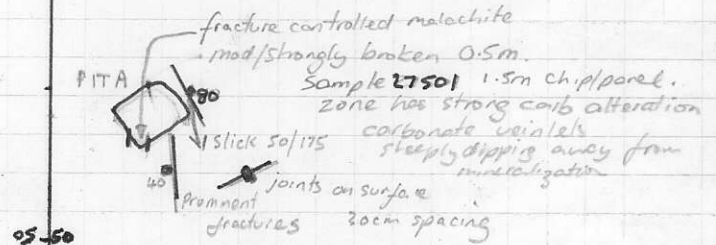 fracture controlled malachite
mod/strongly broken 0.5m.
PITA
Sample 27501 1.5m chip/panel.
80
zone has strong carb alteration
carbonate veinlets
Slick 50/175
steeply dipping away from
mineralization
40
joints on surface
Prominent
fractures
30cm spacing
05 50